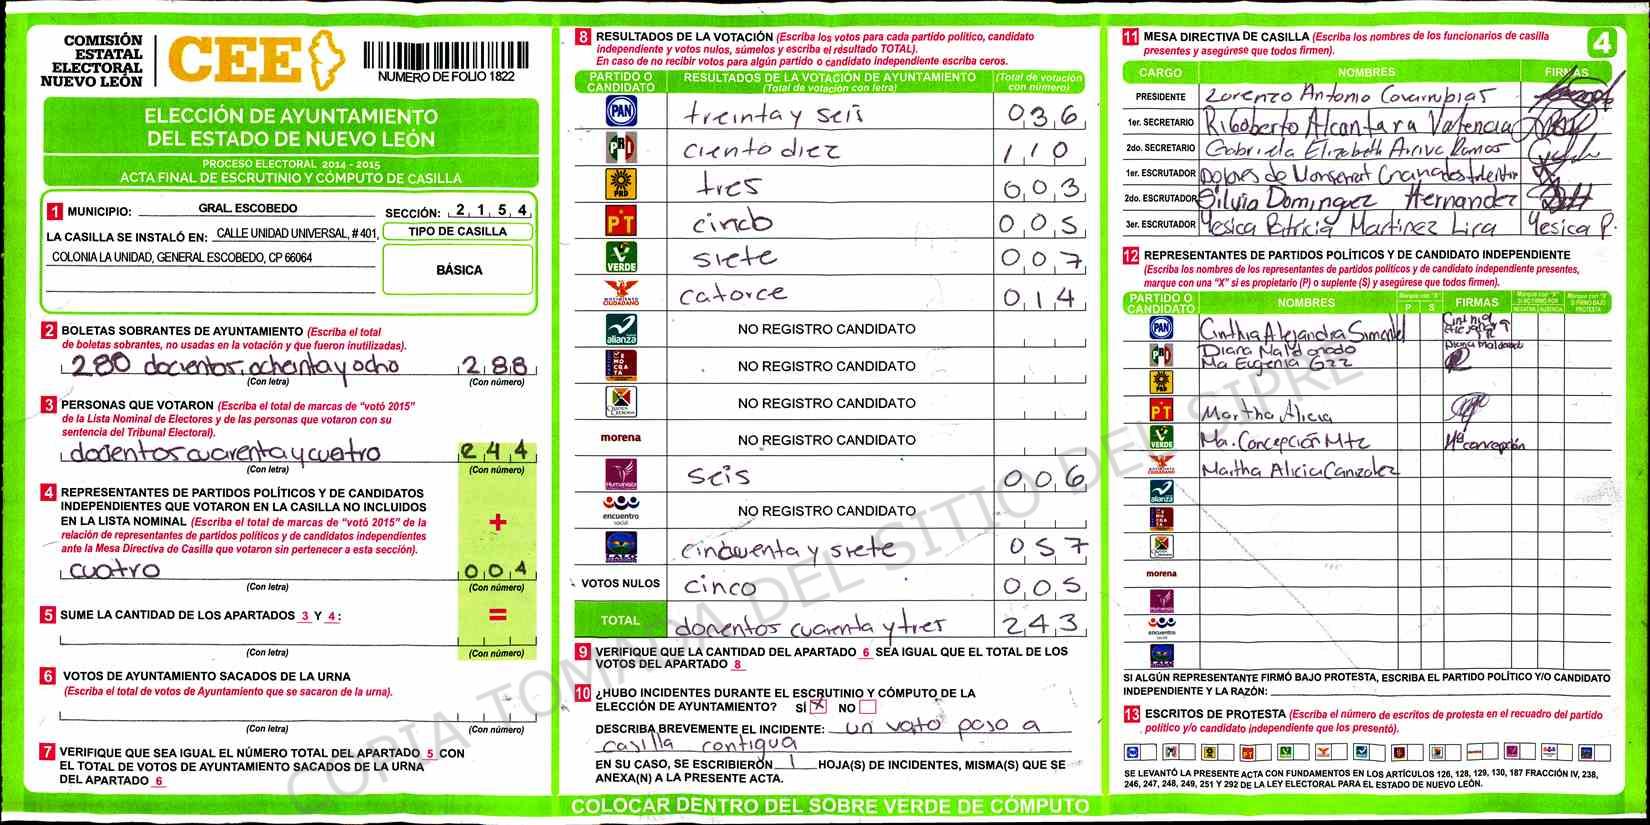 COMISIÓN
ESTATAL
ELECTORAL
NUEVO LEÓN
CEE
NUMERO DE FOLIO 1822
ELECCIÓN DE AYUNTAMIENTO
DEL ESTADO DE NUEVO LEÓN
PROCESO ELECTORAL 2014 - 2015
ACTA FINAL DE ESCRUTINIO Y CÓMPUTO DE CASILLA
1 MUNICIPIO: GRAL. ESCOBEDO SECCIÓN: 2 1 5 4
LA CASILLA SE INSTALÓ EN: CALLE UNIDAD UNIVERSAL, # 401,
COLONIA LA UNIDAD, GENERAL ESCOBEDO, CP 66064
TIPO DE CASILLA
BÁSICA
2 BOLETAS SOBRANTES DE AYUNTAMIENTO (Escriba el total
de boletas sobrantes, no usadas en la votación y que fueron inutilizadas).
280 docientos, ochenta y ocho 2 8 8
(Con letra) (Con número)
3 PERSONAS QUE VOTARON (Escriba el total de marcas de "votó 2015"
de la Lista Nominal de Electores y de las personas que votaron con su
sentencia del Tribunal Electoral).
docientos cuarenta y cuatro 2 4 4
(Con letra) (Con número)
4 REPRESENTANTES DE PARTIDOS POLÍTICOS Y DE CANDIDATOS
INDEPENDIENTES QUE VOTARON EN LA CASILLA NO INCLUIDOS
EN LA LISTA NOMINAL (Escriba el total de marcas de "votó 2015" de la
relación de representantes de partidos políticos y de candidatos independientes
ante la Mesa Directiva de Casilla que votaron sin pertenecer a esta sección).
+
cuatro 0 0 4
(Con letra) (Con número)
5 SUME LA CANTIDAD DE LOS APARTADOS 3 Y 4: =
(Con letra) (Con número)
6 VOTOS DE AYUNTAMIENTO SACADOS DE LA URNA
(Escriba el total de votos de Ayuntamiento que se sacaron de la urna).
(Con letra) (Con número)
7 VERIFIQUE QUE SEA IGUAL EL NÚMERO TOTAL DEL APARTADO 5 CON
EL TOTAL DE VOTOS DE AYUNTAMIENTO SACADOS DE LA URNA
DEL APARTADO 6
8 RESULTADOS DE LA VOTACIÓN (Escriba los votos para cada partido político, candidato
independiente y votos nulos, súmelos y escriba el resultado TOTAL).
En caso de no recibir votos para algún partido o candidato independiente escriba ceros.
PARTIDO O CANDIDATO RESULTADOS DE LA VOTACIÓN DE AYUNTAMIENTO (Total de votación con letra) (Total de votación con número)
PAN treinta y seis 0 3 6
PRD ciento diez 1 1 0
PRD tres 0 0 3
PT cinco 0 0 5
VERDE siete 0 0 7
MOVIMIENTO CIUDADANO catorce 0 1 4
alianza NO REGISTRO CANDIDATO
DEMOCRATA NO REGISTRO CANDIDATO
NO REGISTRO CANDIDATO
morena NO REGISTRO CANDIDATO
Humanista seis 0 0 6
encuentro social NO REGISTRO CANDIDATO
LALO cincuenta y siete 0 5 7
VOTOS NULOS cinco 0 0 5
TOTAL docientos cuarenta y tres 2 4 3
9 VERIFIQUE QUE LA CANTIDAD DEL APARTADO 6 SEA IGUAL QUE EL TOTAL DE LOS
VOTOS DEL APARTADO 8
10 ¿HUBO INCIDENTES DURANTE EL ESCRUTINIO Y CÓMPUTO DE LA
ELECCIÓN DE AYUNTAMIENTO? SÍ X NO
DESCRIBA BREVEMENTE EL INCIDENTE: un voto paso a
casilla contigua
EN SU CASO, SE ESCRIBIERON 1 HOJA(S) DE INCIDENTES, MISMA(S) QUE SE
ANEXA(N) A LA PRESENTE ACTA.
COLOCAR DENTRO DEL SOBRE VERDE DE CÓMPUTO
11 MESA DIRECTIVA DE CASILLA (Escriba los nombres de los funcionarios de casilla
presentes y asegúrese que todos firmen).
4
CARGO NOMBRES FIRMAS
PRESIDENTE Lorenzo Antonio Covarrubias
1er. SECRETARIO Rigoberto Alcantara Valencia
2do. SECRETARIO Gabriela Elizabeth Ramos
1er. ESCRUTADOR Dolores de Monserrat Granados
2do. ESCRUTADOR Silvia Dominguez Hernandez
3er. ESCRUTADOR Yesica Patricia Martinez Lira Yesica P.
12 REPRESENTANTES DE PARTIDOS POLÍTICOS Y DE CANDIDATO INDEPENDIENTE
(Escriba los nombres de los representantes de partidos políticos y de candidato independiente presentes,
marque con una "X" si es propietario (P) o suplente (S) y asegúrese que todos firmen).
PARTIDO O CANDIDATO NOMBRES P S FIRMAS
PAN Cinthia Alejandra
Diana Maldonado Diana Maldonado
Ma Eugenia Gzz
PRD
PT Martha Alicia
VERDE Ma. Concepción Mtz Ma concepción
Martha Alicia Canzalez
alianza
morena
Humanista
encuentro social
LALO
SI ALGÚN REPRESENTANTE FIRMÓ BAJO PROTESTA, ESCRIBA EL PARTIDO POLÍTICO Y/O CANDIDATO
INDEPENDIENTE Y LA RAZÓN:
13 ESCRITOS DE PROTESTA (Escriba el número de escritos de protesta en el recuadro del partido
político y/o candidato independiente que los presentó).
SE LEVANTÓ LA PRESENTE ACTA CON FUNDAMENTOS EN LOS ARTÍCULOS 126, 128, 129, 130, 187 FRACCIÓN IV, 238,
246, 247, 248, 249, 251 Y 292 DE LA LEY ELECTORAL PARA EL ESTADO DE NUEVO LEÓN.
COPIA TOMADA DEL SITIO DEL SIPRE